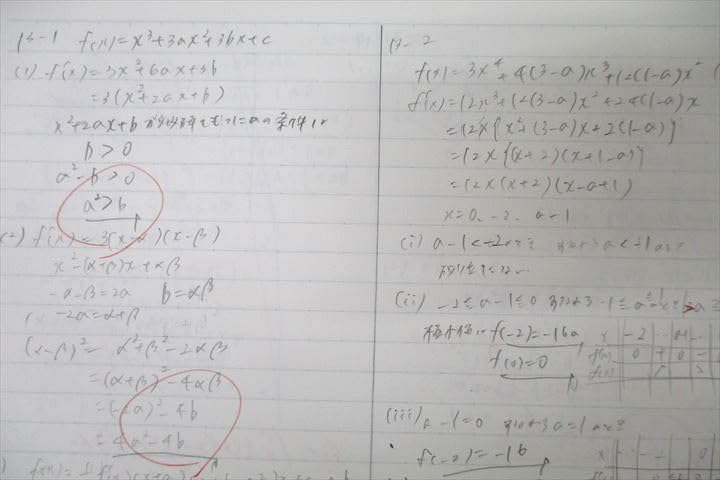 13-1 f(x)=x³+3ax²+3bx+c
(1) f'(x)=3x²+6ax+3b
=3(x²+2ax+b)
x²+2ax+b
b>0
a²-b>0
a²>b
(2) f'(x)=3(x-α)(x-β)
x²-(α+β)x+αβ
-α-β=2a b=αβ
-2a=α+β
(α-β)²=α²+β²-2αβ
=(α+β)²-4αβ
=(-2a)²-4b
=4a²-4b
13-2
f(x)=3x⁴+4(3-a)x³+12(1-a)x²
f'(x)=12x³+12(3-a)x²+24(1-a)x
=12x{x²+(3-a)x+2(1-a)}
=12x{(x+2)(x+1-a)}
=12x(x+2)(x-a+1)
x=0, -2, a-1
(i) a-1<-2のとき すなわちa<-1のとき
(ii) -2≦a-1≦0 すなわち-1≦a≦1
極小値は f(-2)=-16a
f(0)=0
x -2 … a-1 …
f'(x) 0 + 0 -
f(x)
(iii) a-1=0 すなわちa=1のとき
f(-2)=-16
x … 0